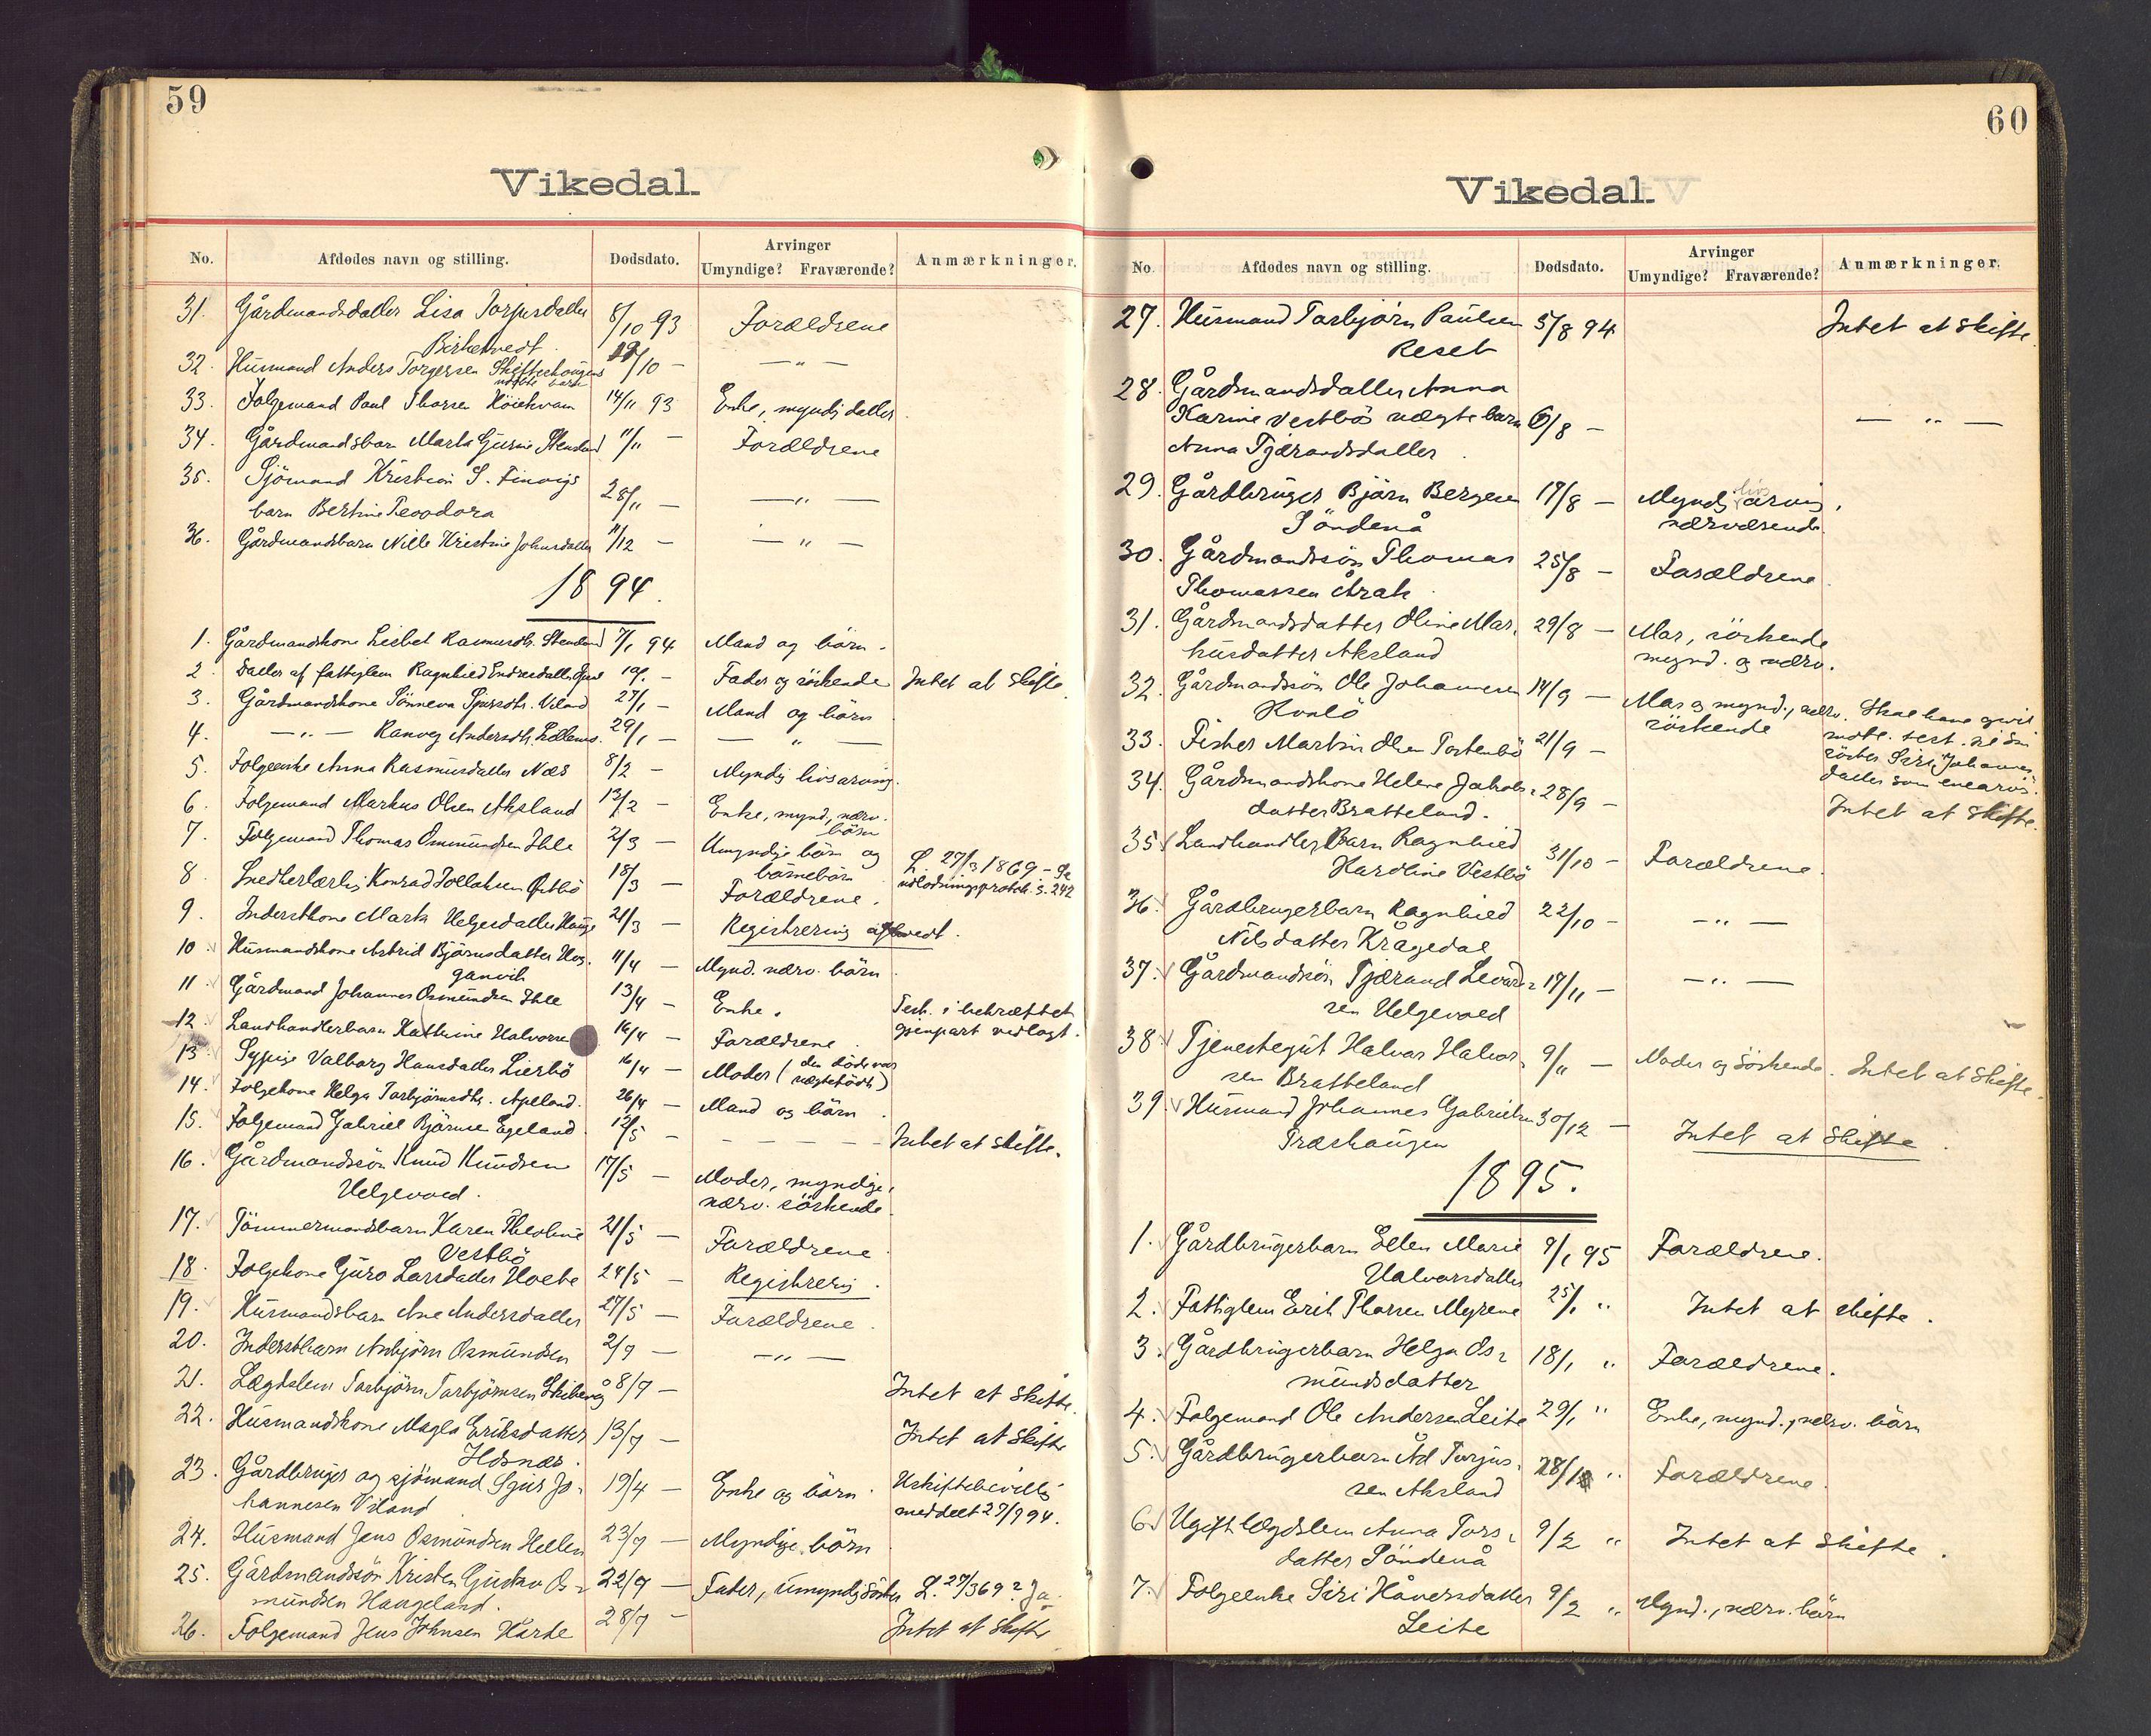 59
Vikedal.
No. Afdødes navn og stilling. Dødsdato. Arvinger Umyndige? Fraværende? Anmærkninger.
31. Gårdmandsdatter Lisa Torjusdatter 8/10 93 Forældrene
Birkelvedt.
32. Husmand Anders Torgersen 19/10 — — " —
33. Folgemand Paul Thorsen 14/11 93 Enke, myndig datter
34. Gårdmandsbarn Marta Gurine Stensland 11/11 — Forældrene
35. Sjömand Kristian S. Finvigs
barn Bertine Teodora 28/11 — — " —
36. Gårdmandsbarn Nille Kristine Johnsdatter 11/12 — — " —
1894.
1. Gårdmandskone Lisbet Rasmusdtr. Stensland 7/1 94 Mand og börn.
2. Datter af fattiglem Ragnhild Endresdatter 19/1 — Fader og söskende Intet at skifte.
3. Gårdmandskone Sönneva Sjursdtr. Viland 27/1 — Mand og börn
4. — " — Ranveg Andersdtr. 29/1 — — " —
5. Folgeenke Anna Rasmusdatter Næs 8/2 — Myndig livsarving.
6. Folgemand Markus Olsen Aksland 13/2 — Enke, mynd, nærv.
börn
7. Folgemand Thomas Osmundsen Ihle 2/3 — Umyndige börn og
börnebörn L. 27/3 1869 – Se
udlodningsprotok. s. 242
8. Snedkerlærling Konrad Tollaksen Østbö 18/3 — Forældrene.
9. Inderstkone Marta Helgesdatter Hauge 21/3 — Registrering
10. Husmandskone Astrid Björnsdatter Hog-
ganvik 11/4 — Mynd. nærv. börn
11. Gårdmand Johannes Osmundsen Ihle 13/4 — Enke. Test. i bekræftet
gjenpart vedlagt.
12. Landhandlerbarn Kathrine Halvorsen 14/4 — Forældrene
13. Sypige Valborg Hansdatter Lierbö 16/4 — Moder (den döde var
uægtefödt)
14. Folgekone Helga Torbjörnsdtr. Apeland. 26/4 — Mand og börn.
15. Folgemand Gabriel Björnsen Egeland 12/5 — — — — — Intet at skifte.
16. Gårdmandssön Knud Knudsen
Helgevold. 17/5 — Moder, myndige,
nærv. söskende
17. Tömmermandsbarn Karen Theoline
Vestbö 21/5 — Forældrene
18. Folgekone Guro Larsdatter 24/5 — Registrering.
19. Husmandsbarn Ane Andersdatter 27/5 — Forældrene.
20. Inderstbarn Asbjörn Osmundsen 2/7 — — " —
21. Lægdslem Torbjörn Torbjörnsen 8/7 — Intet at skifte.
22. Husmandskone Magla Eriksdatter
Hosnæs. 13/7 — Intet at skifte
23. Gårdbruger og sjömand Sjur Jo-
hannesen Viland 19/4 — Enke og börn. Uskiftebevilling
meddelt 27/7 94.
24. Husmand Jens Osmundsen Hellen 23/7 — Myndige börn
25. Gårdmandssön Kristen Gustav Os-
mundsen Haugeland. 22/7 — Fader, umyndig söster L. 27/3 69? Ja.
26. Folgemand Jens Johnsen 28/7 — Intet at skifte
60
Vikedal.
No. Afdødes navn og stilling. Dødsdato. Arvinger Umyndige? Fraværende? Anmærkninger.
27. Husmand Torbjörn Paulsen 5/8 94 Intet at skifte.
28. Gårdmandsdatter Anna
Karine Vestbös uægte barn 6/8 — — " —
Anna Tjærandsdatter.
29. Gårdbruger Björn Bergesen 17/8 — Myndig livsarving,
Söndenå nærværende.
30. Gårdmandssön Thomas 25/8 — Forældrene.
Thomassen
31. Gårdmandsdatter Oline Mar- 29/8 — Mor, söskende
husdatter Aksland mynd. og nærv.
32. Gårdmandssön Ole Johannesen 14/9 — Mor og mynd., nærv. Skal have
söskende
söster Siri Johannes-
datter som enearv.
33. Fisker Martin Olsen 21/9 —
34. Gårdmandskone Helene Jakobs- 28/9 —
datter Bratteland. Intet at skifte.
35. Landhandlerbarn Ragnhild 31/10 — Forældrene.
Karoline Vestbö
36. Gårdbrugerbarn Ragnhild 22/10 — — " —
Nilsdatter Krågedal
37. Gårdmandssön Tjærand Levard- 17/11 — — " —
sen Helgevold
38. Tjenestegut Halvor Halvor- 9/11 — Moder og söskende. Intet at skifte.
sen Bratteland
39. Husmand Johannes Gabrielsen 30/12 — Intet at skifte.
Træshaugen
1895.
1. Gårdbrugerbarn Ellen Marie 9/1 95 Forældrene.
Halvorsdatter
2. Fattiglem Erik Thorsen Myrene 25/1 " Intet at skifte.
3. Gårdbrugerbarn Helga Os- 18/1 " Forældrene.
mundsdatter
4. Folgemand Ole Andersen Leite 29/1 " Enke, mynd., nærv. börn
5. Gårdbrugerbarn Ad Torjus- 28/1 " Forældrene.
sen Aksland
6. Ugift lægdslem Anna Tors- 9/2 " Intet at skifte.
datter Söndenå
7. Folgeenke Siri Håversdatter 9/2 " Mynd., nærv. börn
Leite